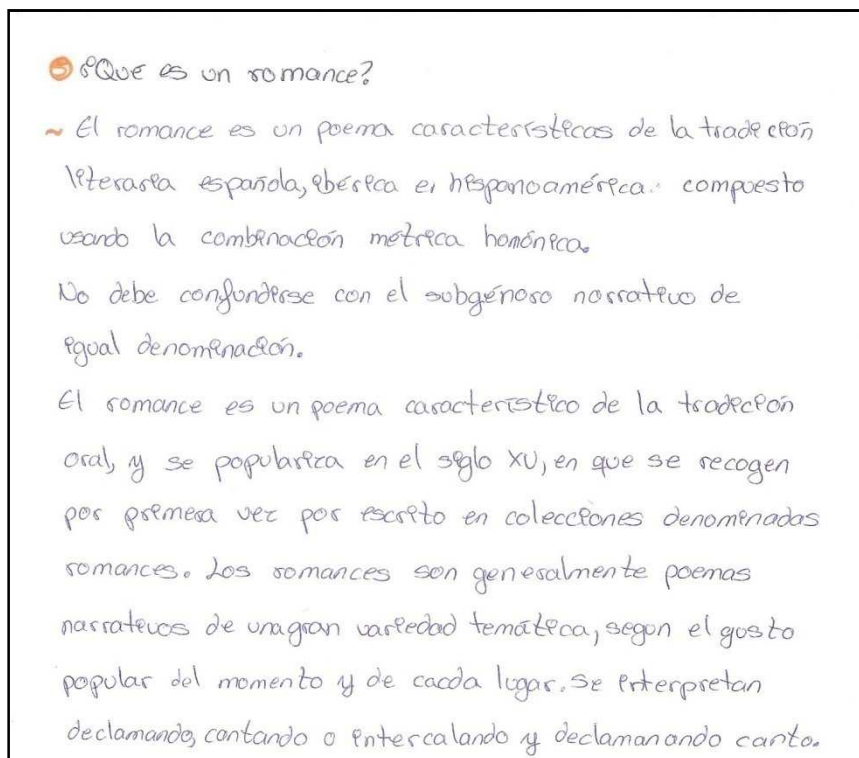 5 ¿Que es un romance?
~ El romance es un poema caracteristicas de la tradición
literaria española, ibérica e, hispanoamérica. compuesto
usando la combinación métrica homónica.
No debe confundirse con el subgénoro narrativo de
igual denominación.
El romance es un poema característico de la tradición
oral, y se populariza en el siglo XV, en que se recogen
por primera vez por escrito en colecciones denominadas
romances. Los romances son generalmente poemas
narrativos de unagran variedad temática, segun el gusto
popular del momento y de cacda lugar. Se interpretan
declamando, cantando o intercalando y declamanando canto.